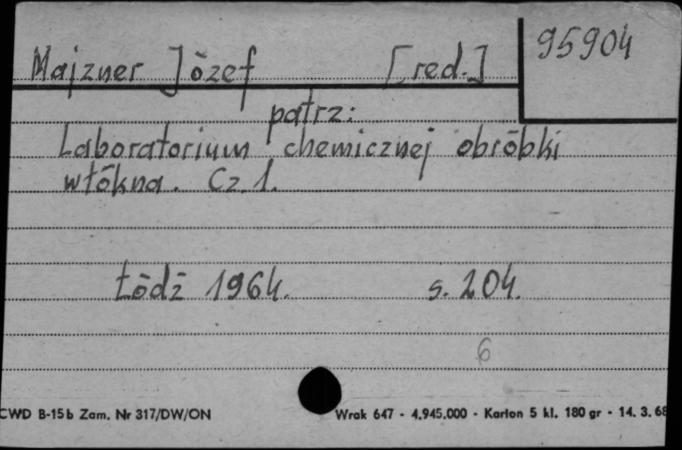 95904
Majzner Józef [red.]
patrz:
Laboratorium chemicznej obróbki
włókna. Cz. 1.
Łódź 1964. s. 204.
6
CWD B-15b Zam. Nr 317/DW/ON Wrak 647 - 4.945.000 - Karton 5 kl. 180 gr - 14. 3. 68